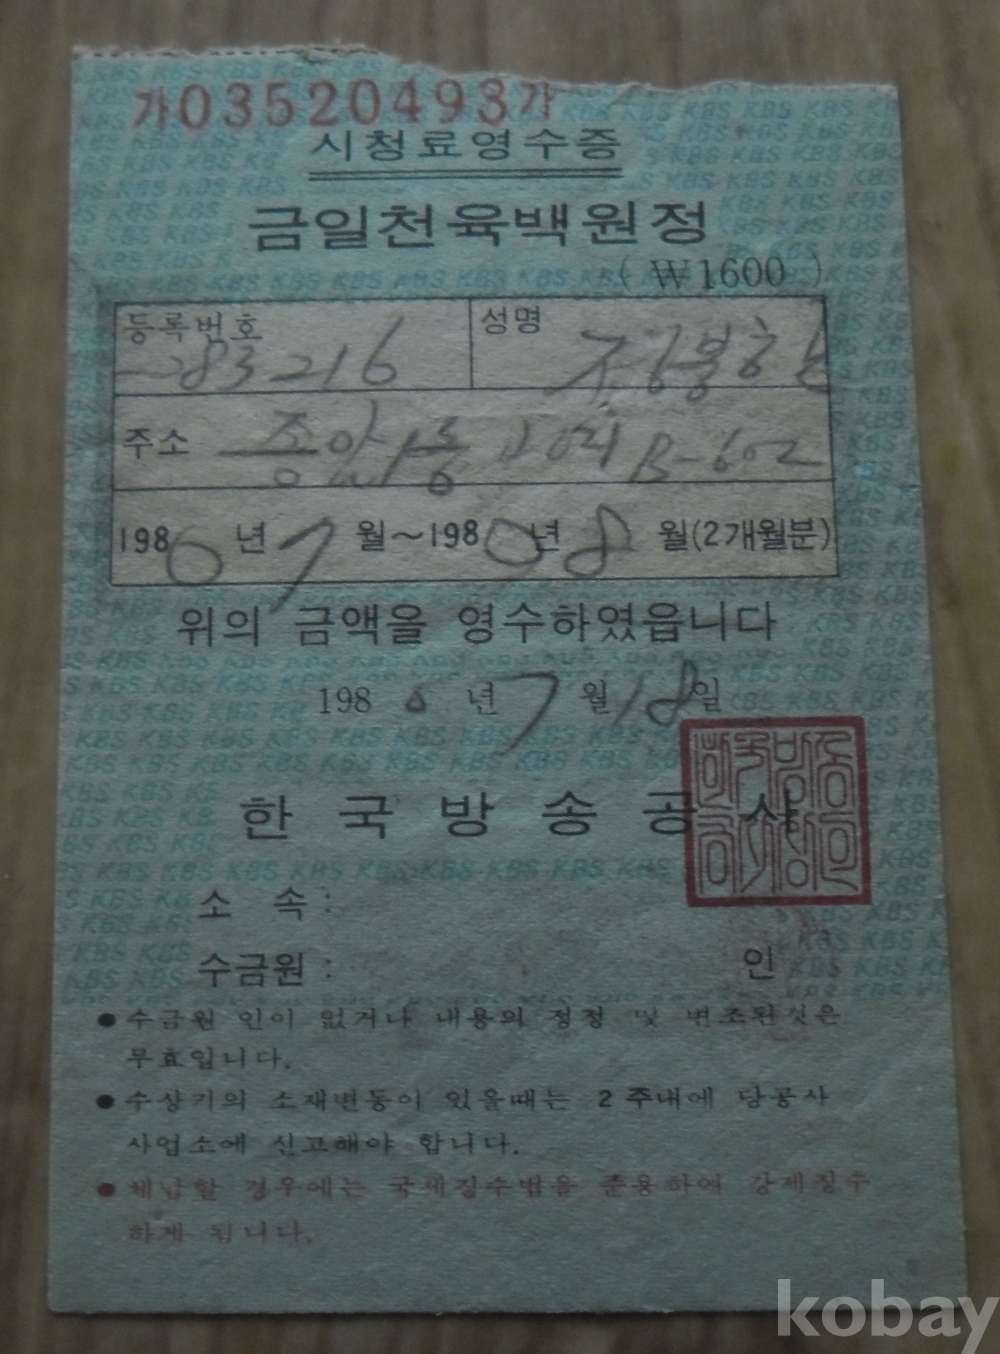 가03520493가
시청료영수증
금일천육백원정
(₩1600)
등록번호 283216 성명
주소 B-602
1980년 7월~1980년 8월(2개월분)
위의 금액을 영수하였읍니다
1980년 7월 18일
한국방송공사
소 속 :
수금원 : 인
● 수금원 인이 없거나 내용의 정정 및 변조된것은
무효입니다.
● 수상기의 소재변동이 있을때는 2주내에 당공사
사업소에 신고해야 합니다.
● 체납할 경우에는 국세징수법을 준용하여 강제징수
하게 됩니다.
kobay